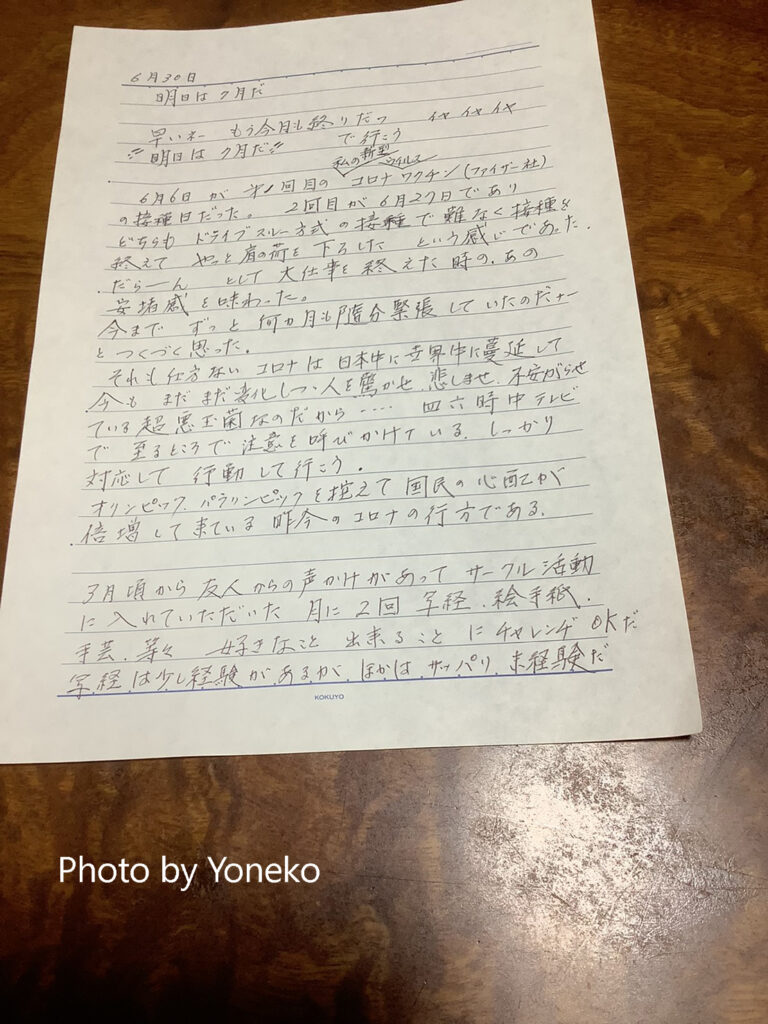 6月30日
明日は7月だ
早いネー もう今月も終りだっ イヤ イヤ イヤ
〃明日は7月だ〃 で行こう
私の新型 ウイルス
6月6日が 第1回目の コロナワクチン(ファイザー社)
の接種日だった。 2回目が6月27日であり
どちらも ドライブスルー方式の接種で難なく接種を
終えて やっと肩の荷を下ろした という感じであった.
だらーん として 大仕事を終えた時の、あの
安堵感を味わった。
今まで ずっと 何か月も随分緊張していたのだナー
とつくづく思った.
それも仕方ない コロナは日本中に世界中に蔓延して
今も まだまだ変化しつつ人を驚かせ、悲しませ、不安がらせ
ている超悪玉菌なのだから‥‥ 四六時中テレビ
で 至るところで 注意を呼びかけている、しっかり
対応して 行動して行こう.
オリンピック、パラリンピックを控えて国民の心配が
倍増して来ている昨今のコロナの行方である.
3月頃から友人からの声かけがあって サークル活動
に入れていただいた 月に2回 写経、絵手紙、
手芸、等々 好きなこと 出来ること にチャレンヂ OKだ
写経は少し経験があるが、ほかは サッパリ、未経験だ
KOKUYO
Photo by Yoneko